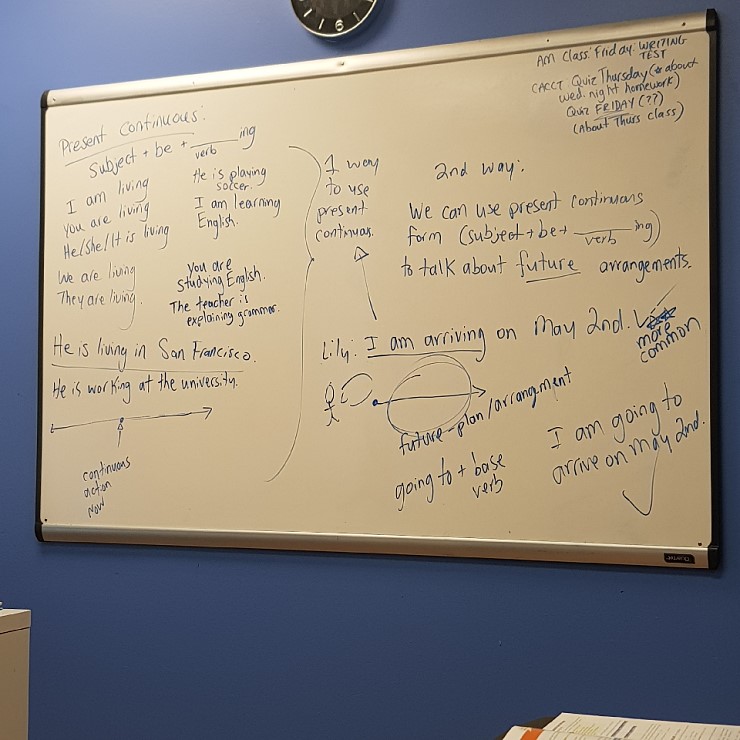 Present Continuous:
Subject + be + ______ing
verb
I am living
You are living
He/She/It is living
We are living
They are living.
He is playing
soccer.
I am learning
English.
you are
studying English.
The teacher is
explaining grammar.
He is living in San Francisco.
He is working at the university.
continuous
action
now
1 way
to use
present
continuous.
2nd way:
We can use present continuous
form (subject + be + ______ing)
verb
to talk about future arrangements.
Lily: I am arriving on May 2nd.
more
common
future-plan/arrangment
going to + base
verb
I am going to
arrive on May 2nd.
AM Class: Friday: WRITING
TEST
CACCT Quiz Thursday (about
wed. night homework)
Quiz FRIDAY (??)
(About Thurs class)
Quartet